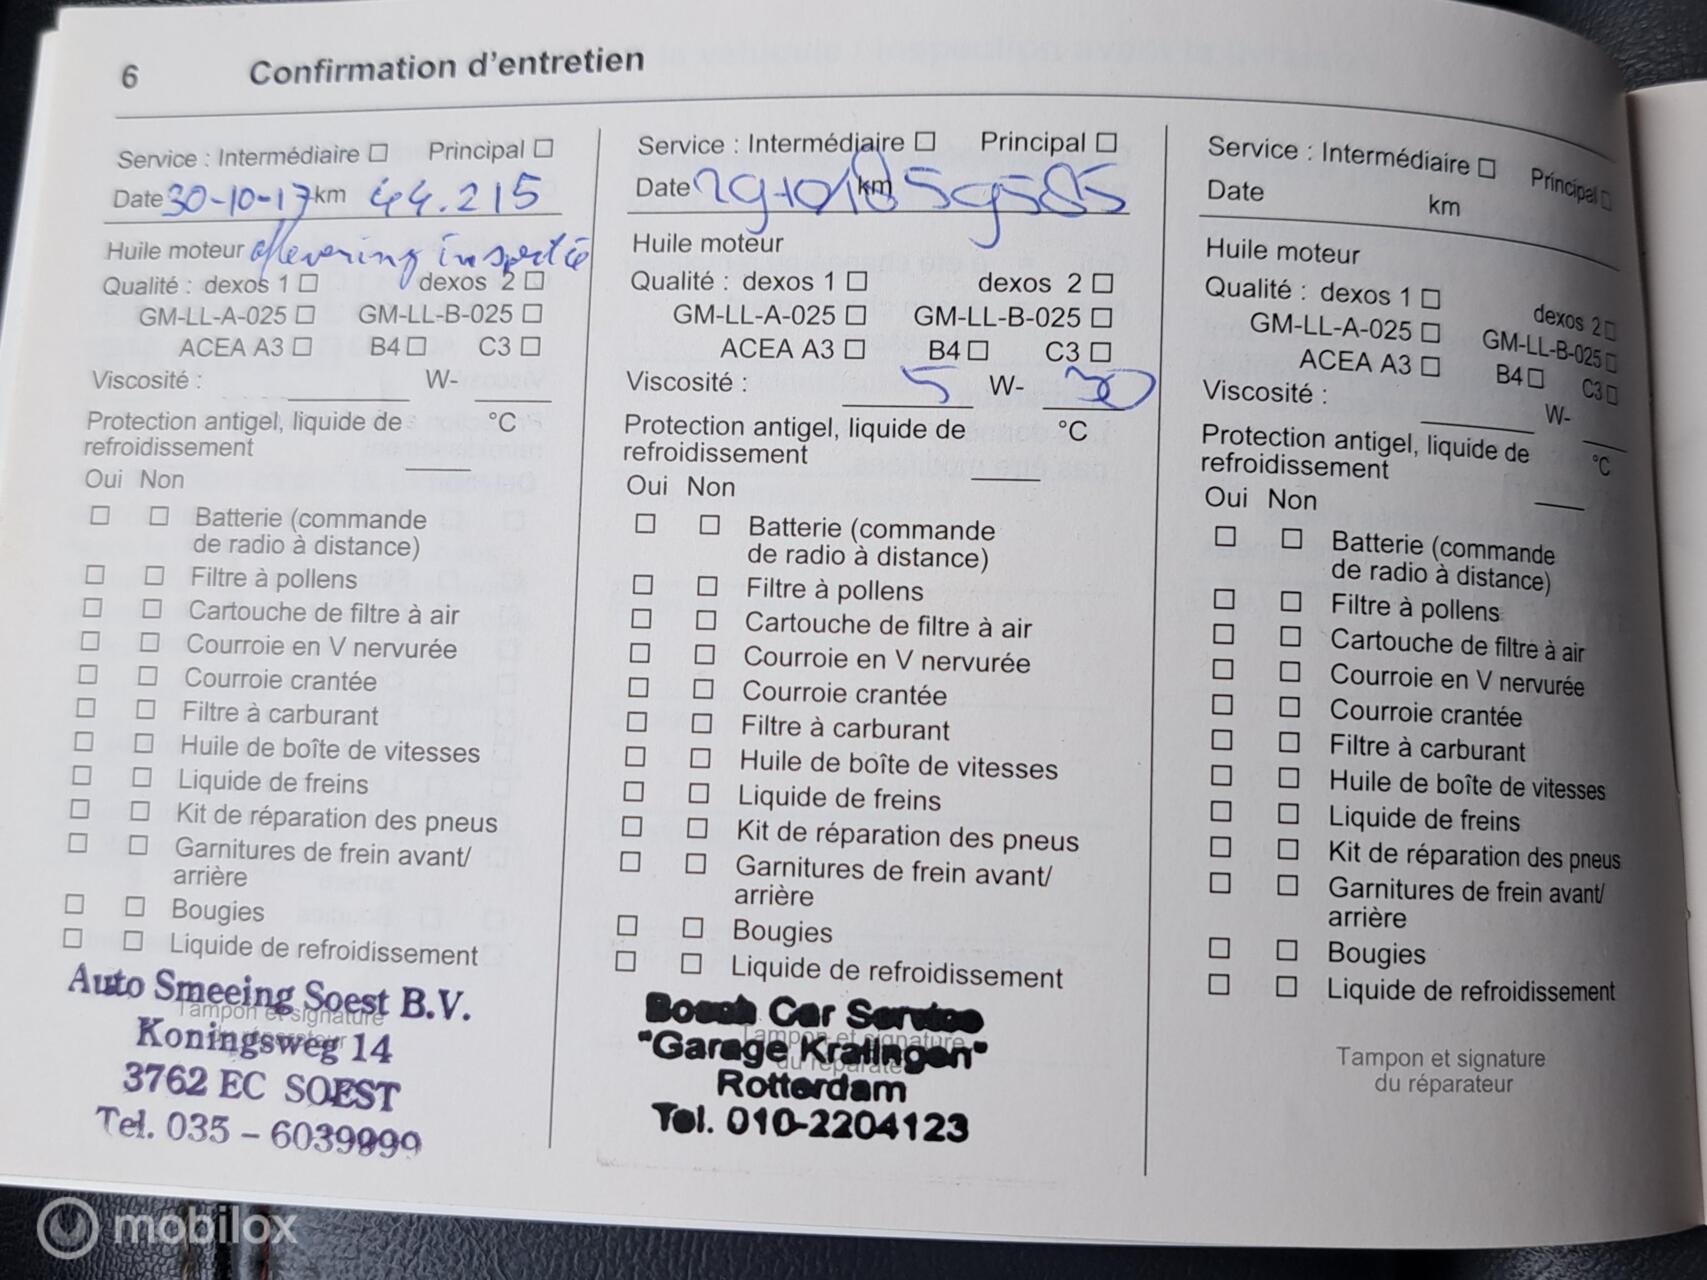 6 Confirmation d'entretien
Service : Intermédiaire Principal
Date 30-10-17 km 44.215
Huile moteur aflevering inspectie
Qualité : dexos 1 dexos 2
GM-LL-A-025 GM-LL-B-025
ACEA A3 B4 C3
Viscosité : W-
Protection antigel, liquide de °C
refroidissement
Oui Non
Batterie (commande
de radio à distance)
Filtre à pollens
Cartouche de filtre à air
Courroie en V nervurée
Courroie crantée
Filtre à carburant
Huile de boîte de vitesses
Liquide de freins
Kit de réparation des pneus
Garnitures de frein avant/
arrière
Bougies
Liquide de refroidissement
Tampon et signature
du réparateur
Auto Smeeing Soest B.V.
Koningsweg 14
3762 EC SOEST
Tel. 035 - 6039999
Service : Intermédiaire Principal
Date km 59585
Huile moteur
Qualité : dexos 1 dexos 2
GM-LL-A-025 GM-LL-B-025
ACEA A3 B4 C3
Viscosité : 5 W- 30
Protection antigel, liquide de °C
refroidissement
Oui Non
Batterie (commande
de radio à distance)
Filtre à pollens
Cartouche de filtre à air
Courroie en V nervurée
Courroie crantée
Filtre à carburant
Huile de boîte de vitesses
Liquide de freins
Kit de réparation des pneus
Garnitures de frein avant/
arrière
Bougies
Liquide de refroidissement
Tampon et signature
du réparateur
Bosch Car Service
"Garage Kralingen"
Rotterdam
Tel. 010-2204123
Service : Intermédiaire Principal
Date km
Huile moteur
Qualité : dexos 1 dexos 2
GM-LL-A-025 GM-LL-B-025
ACEA A3 B4 C3
Viscosité : W-
Protection antigel, liquide de °C
refroidissement
Oui Non
Batterie (commande
de radio à distance)
Filtre à pollens
Cartouche de filtre à air
Courroie en V nervurée
Courroie crantée
Filtre à carburant
Huile de boîte de vitesses
Liquide de freins
Kit de réparation des pneus
Garnitures de frein avant/
arrière
Bougies
Liquide de refroidissement
Tampon et signature
du réparateur
mobilox